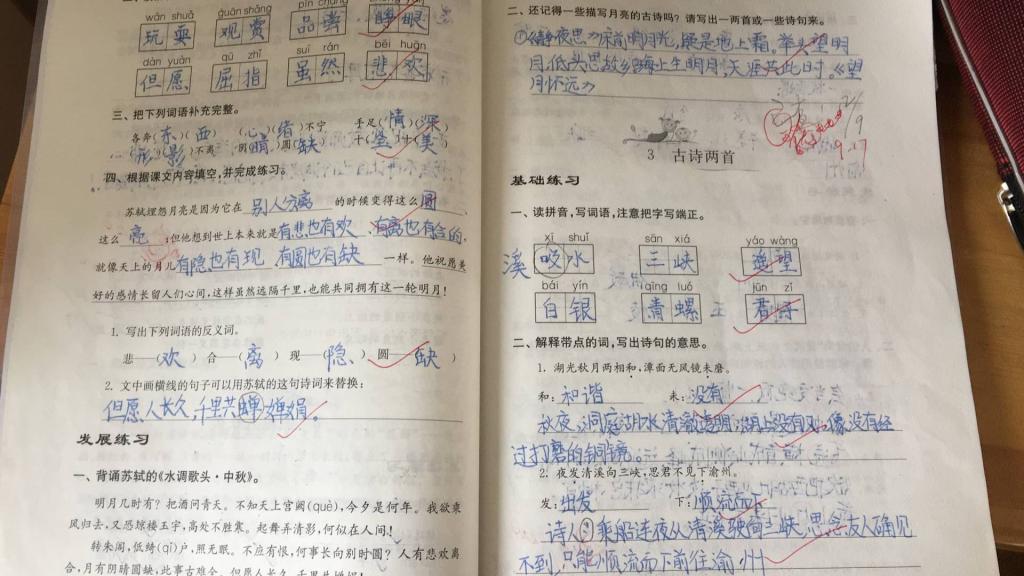 wán shuǎ guān shǎng pǐn cháng
玩耍 观赏 品尝 睁眼
dàn yuàn qū zhǐ suī rán bēi huān
但愿 屈指 虽然 悲欢
三、把下列词语补充完整。
各奔(东)(西) (心)(绪)不宁 手足(情)(深)
(形)(影)不离 阴(晴)圆(缺) 十(全)十(美)
四、根据课文内容填空,并完成练习。
苏轼埋怨月亮是因为它在 别人分离 的时候变得这么 圆
这么 亮 ;但他想到世上本来就是有悲也有欢、有离也有合的,
就像天上的月儿有隐也有现、有圆也有缺 一样。他祝愿美
好的感情长留人们心间,这样虽然远隔千里,也能共同拥有这一轮明月!
1. 写出下列词语的反义词。
悲——(欢) 合——(离) 现——(隐) 圆——(缺)
2. 文中画横线的句子可以用苏轼的这句诗词来替换:
但愿人长久,千里共婵娟。
发展练习
一、背诵苏轼的《水调歌头·中秋》。
明月几时有?把酒问青天。不知天上宫阙(què),今夕是何年。我欲乘
风归去,又恐琼楼玉宇,高处不胜寒。起舞弄清影,何似在人间!
转朱阁,低绮(qǐ)户,照无眠。不应有恨,何事长向别时圆?人有悲欢离
合,月有阴晴圆缺,此事古难全。但愿人长久,千里共婵娟!
二、还记得一些描写月亮的古诗吗?请写出一两首或一些诗句来。
①《静夜思》床前明月光,疑是地上霜。举头望明
月,低头思故乡。海上生明月,天涯共此时。《望
月怀远》
9.17
3 古诗两首
基础练习
一、读拼音,写词语,注意把字写端正。
xī shuǐ sān xiá yáo wàng
溪 水 三峡 遥望
bái yín qīng luó jūn zǐ
白银 青螺 君子
二、解释带点的词,写出诗句的意思。
1. 湖光秋月两相和,潭面无风镜未磨。
和: 和谐 未: 没有
秋夜,洞庭湖水清澈透明,湖上没有风,像没有经
过打磨的铜镜。
2. 夜发清溪向三峡,思君不见下渝州。
发: 出发 下: 顺流而下
诗人 乘船连夜从清溪驶向三峡,思念友人确见
不到,只能顺流而下前往渝州